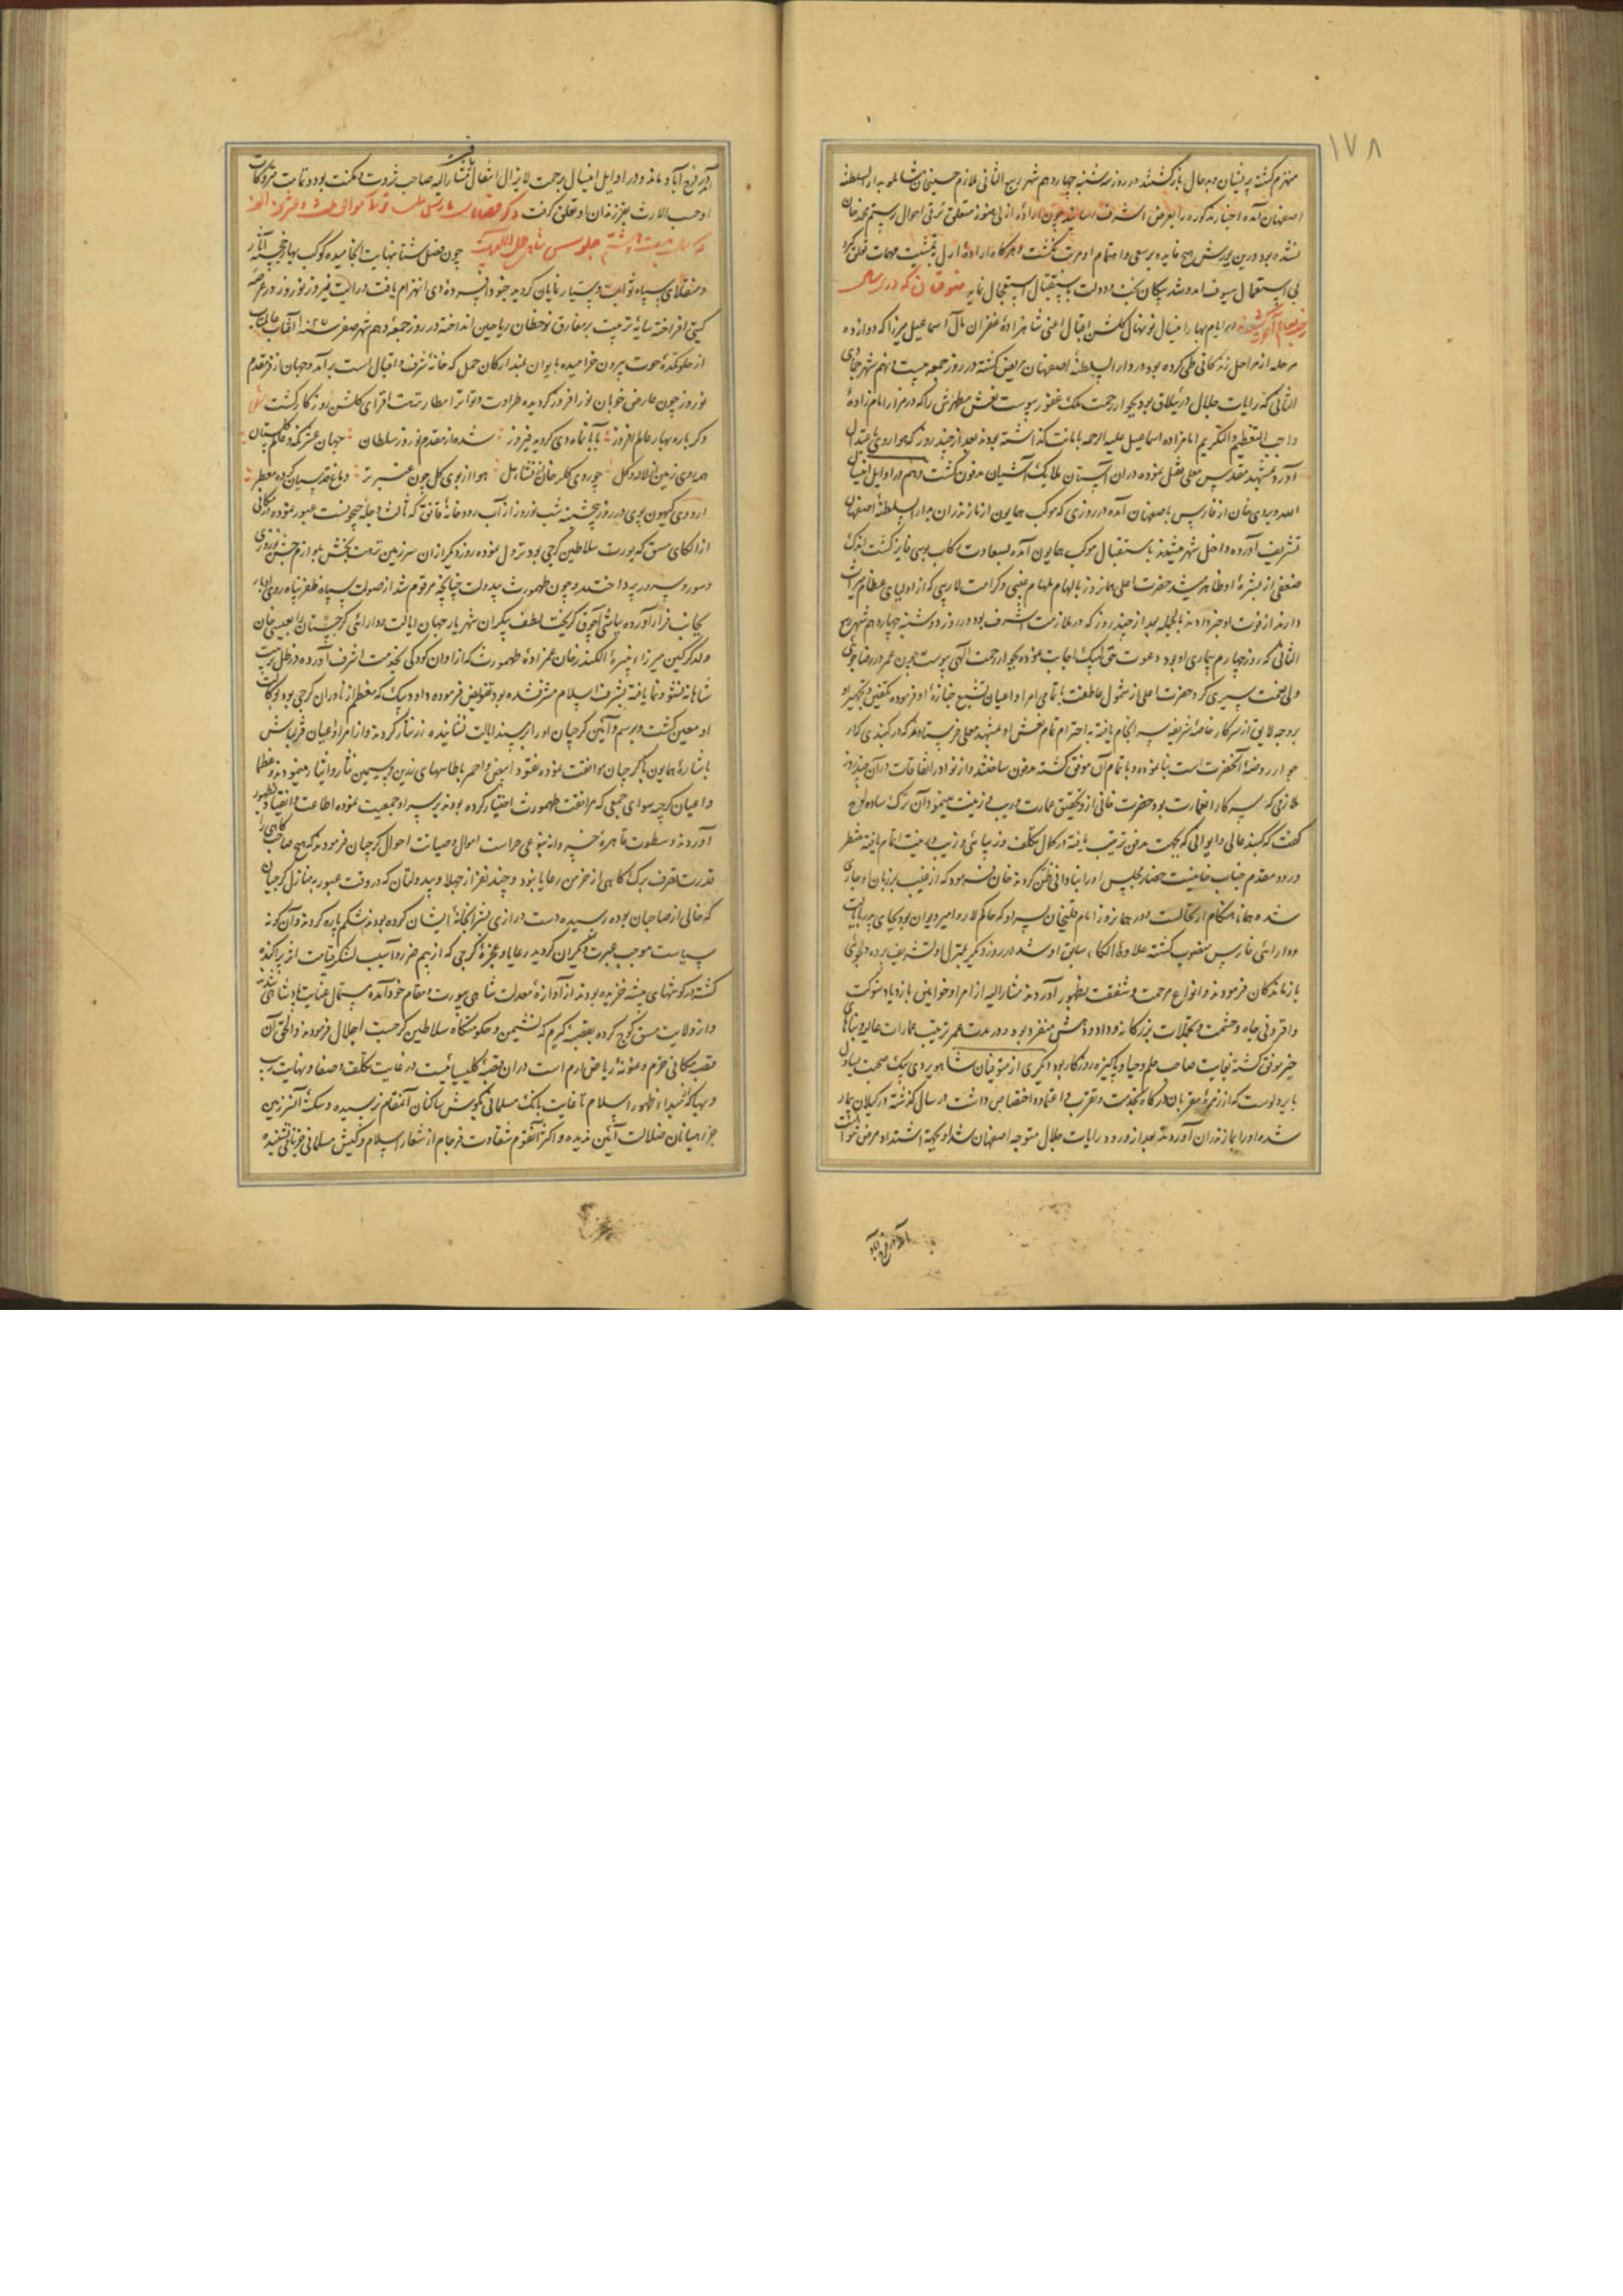 ١٧٨
منهزم گشته پریشان و بدحال بازگشتند در روز سه شنبه چهاردهم شهر ربیع الثانی ملازم حسینخان شاملو بدار السلطنه
اصفهان آمده اخبار مذکوره را بعرض اشرف رسانید چون اراده ازلی هنوز متعلق ترقی احوال رستم محمد خان
نشده بود درین یورش هیچ فایده بر سعی و اهتمام او مرتب نگشت و هرگاه اراده ازلی بتمشیت مهمات تعلق گیرد
بی استعمال سیوف بخت و دولت باستقبال استعجال نماید متوفیان که در سال
در ایام بهار اخیال نونهال گلشن اقبال اعنی شاهزاده غفران مآل اسماعیل میرزا که دوازده
مرحله از مراحل زندگانی طی کرده بود در دار السلطنه اصفهان مریض گشته در روز جمعه بیست و نهم شهر جمادی
الثانی که رایات جلال در ییلاق بود بجوار رحمت ملک غفور پیوست نعش مطهرش را که در مزار امام زاده
واجب التعظیم و التکریم امامزاده اسماعیل علیه الرحمه بامانت گذاشته بودند بعد از چند روز که هوا روی باعتدال
آورد بمشهد مقدس معلی نقل نموده در آن آستان ملایک آشیان مدفون گشت و هم در اوایل اخیال
الله ویردی خان از فارس باصفهان آمده در روزی که موکب همایون از مازندران بدار السلطنه اصفهان
تشریف آورده داخل شهر میشدند باستقبال موکب همایون آمده بسعادت رکاب بوسی فایز گشت اندک
ضعفی از بشره او ظاهر شد حضرت اعلی همانروز بالهام ملهم غیبی و کرامت لاریبی که از اولیای عظام میراث
دارند از فوت او خبر دادند بالجمله بعد از چند روز که در ملازمت اشرف بود در روز دوشنبه چهاردهم شهر ربیع
الثانی که روز چهارم بیماری او بود دعوت حق لبیک اجابت نموده بجوار رحمت الهی پیوست چون عمر در رضاجوئی
ولی نعمت سپری کرد حضرت اعلی از شمول عاطفت با تمامی امرا و اعیان تشییع جنازه او فرموده بتکفین و تجهیز او
بر وجه لایق از سرکار خاصه شریفه سرانجام یافته به احترام تمام نعش او بمشهد معلی فرستادند که در گنبدی که در
جوار روضه آنحضرت است بنا نموده و باتمام آن موفق گشته مدفون ساختند و از نوادر اتفاقات در آن چند روز
ملازمی که سرکار آن عمارت بود حضرت خانی از و تحقیق عمارت و زیب و زینت مینمود آن ترک ساده لوح
گفت که گنبد عالی و ایوانی که بجهت مدفن ترتیب یافته در کمال تکلف و زیبائی و زیب و زینت اتمام یافته منتظر
ورود مقدم جناب خانیست حضار مجلس او را بنادانی طعن کردند خان فرمود که از غیب بر زبان او جاری
شده همانا هنگام ارتحالست و در همانروز امام قلیخان پسر او که حاکم لار و امیر دیوان بود بجای پدر بایالت
و دارائی فارس منصوب گشته علاوه الکاء سابق او شد و در روز دیگر بمنزل او تشریف برده دلجوئی
بازماندگان فرمودند و انواع مرحمت و شفقت بظهور آوردند مشار الیه از امرا و خوانین بازدیاد شوکت
و افزونی جاه و حشمت و تجملات بزرگانه و داد و دهش منفرد بود و در مدت عمر بترتیب عمارات عالیه و بناهای
خیر موفق گشته بغایت صاحب حلم و حیا و پاکیزه روزگار بود دیگری از متوفیان شاهویردی بیک صحبت یساول
بایبردلوست که از زمره مقربان درگاه بخدمت و تقرب و اعتماد اختصاص داشت در سال گذشته در گیلان بیمار
شده او را بمازندران آوردند بعد از ورود رایات جلال متوجه اصفهان شد و بجهت اشتداد مرض نتوانست
آمد در فرح آباد
آمد در فرح آباد ماند و در اوایل اخیال برحمت لایزال انتقال یافت مشار الیه صاحب ثروت و مکنت بود و تمامت متروکات
او حسب الارث بفرزندان او تعلق گرفت ذکر قضایای
جلوس شاهی ظل اللهیست چون فصل شتا بنهایت انجامیده کوکب بهار خجسته آثار
گیتی افراخته سایه تربیت بر مفارق نوخطان ریاحین انداخته در روز جمعه دهم شهر صفر سنه آفتاب عالمتاب
از جلوتکده حوت بیرون خرامیده بایوان بلند ارکان حمل که خانه شرف و اقبال است برآمد و جهان از فر مقدم
نوروز چون عارض خوبان نور افروز گردیده طراوت و تواتر امطار نزهت افزای گلشن روزگار گشت شعر
دگر باره بهار عالم افروز بآبانماه دی گردید فیروز شده از مقدم نوروز سلطان جهان عشرتکده عالم گلستان
همه روی زمین از لاله و گل چو روی گلرخان از نشاء مل هوا از بوی گل چون عنبر تر دماغ قدسیان کرده معطر
اردوی گیهان پوی در روز پنجشنبه شب نوروز از آب رودخانه قانق که ثالث دجله و جیحونست عبور نموده در مکانی
از الکای مسق که یورت سلاطین گرجی بود نزول نموده روز دیگر از آن سرزمین نزهت بخش بلوازم جشن نوروزی
و سور و سرور پرداختند و چون طهمورث بیدولت چنانچه مرقوم شد از صولت سپاه ظفر پناه روی ادبار
بجانب فرار آورده بباشی آچوق گریخت لطف بیکران شهریار جهان ایالت و دارائی گرجستان را بعیسی خان
ولد گرگین میرزا و نبیره الکسندر خان عمزاده طهمورث که از اوان کودکی بخدمت اشرف آورده در ظل تربیت
شاهانه نشو و نما یافته بشرف اسلام مشرف شده بود تفویض فرموده داود بیک که معظم از نادران گرجی بود بوکالت
او معین گشت و برسم و آئین گرجیان او را بر مسند ایالت نشانیده زر نثار کردند و از امرا و اعیان قزلباش
باشاره همایون با گرجیان موافقت نموده نقود ابیض و احمر با طاسهای زرین و سیمین نثار و ایثار مینمودند و عظما
و اعیان گرجیه سوای جمعی که مرافقت طهمورث اختیار کرده بودند بر سر او جمعیت نموده اطاعت و انقیاد بظهور
آوردند و سطوت قاهره خسروانه بنوعی حراست اموال و صیانت احوال گرجیان فرمودند که هیچ صاحب کاهی را
قدرت تصرف برگ کاهی از خرمن رعایا نبود و چند نفر از جهلا و بیدولتان که در وقت عبور بمنازل گرجیان
که خالی از صاحبان بوده رسیده دست درازی بشرابخانه ایشان کرده بودند شکم پاره کردند و آن گونه
سیاست موجب عبرت دیگران گردید رعایا و عجزه گرجی که از بیم ضرر و آسیب لشکر قیامت اثر پراکنده
گشته در گوشهای بیشه خزیده بودند از آوازه معدلت شاهی بیورت و مقام خود آمده مستمال عنایت پادشاهی شدند
و از ولایت مسق کوچ کرده بقصبه گرم که نشیمن و حکومتگاه سلاطین گرجست اجلال فرمودند و الحق آن
قصبه مکانی خرم و نمونه ریاض ارم است در آن قصبه کلیسیائیست در غایت تکلف و صفا و نهایت زیب
و بها که از مبداء ظهور اسلام تا غایت بانگ مسلمانی بگوش ساکنان آنمقام نرسیده و سکنه آنسرزمین
جز رهبانان ضلالت آئین ندیده و اکثر آنقوم شقاوت فرجام از شعار اسلام و کیش مسلمانی جز نامی نشنیده